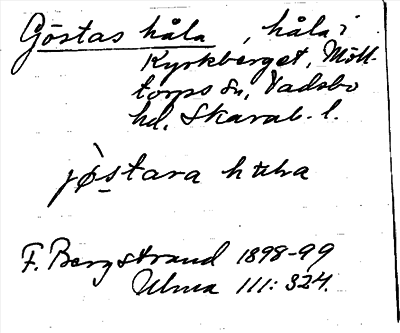 Göstas håla, håla i
Kyrkberget, Möll-
torps sn, Vadsbo
hd, Skarab. l.
jøstara
F. Bergstrand 1898-99
Ulma 111: 324.